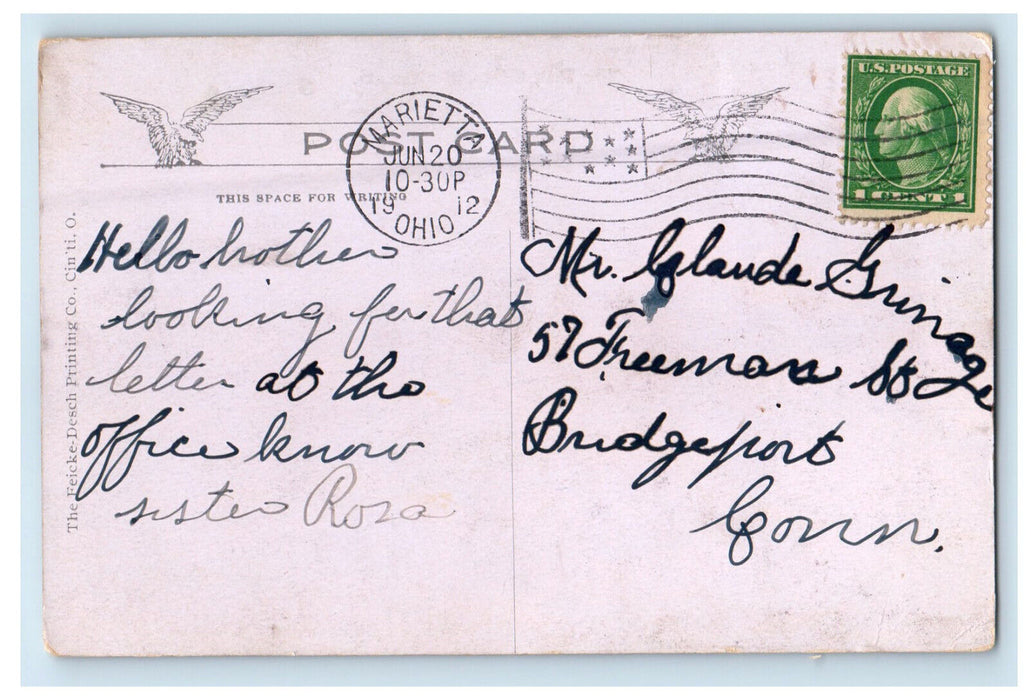 U.S. POSTAGE
1 CENT 1
POST CARD
MARIETTA
JUN 20
10-30P
19 12
OHIO
THIS SPACE FOR WRITING
The Feicke-Desch Printing Co., Cin'ti, O.
Hello brother
looking for that
letter at the
office know
sister Rosa
Mr. Claude Grinage
57 Freeman St
Bridgeport
Conn.